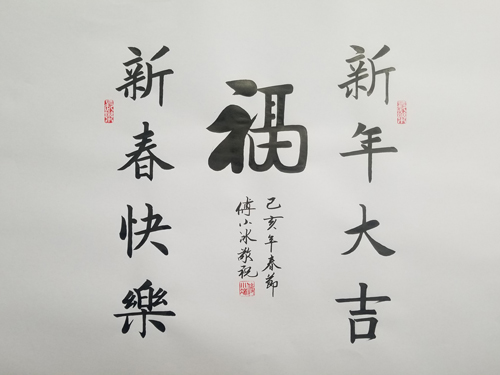 新年大吉
福
己亥年春節
傅小冰敬祝
新春快樂